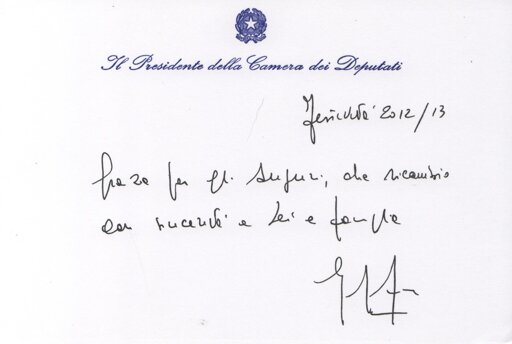 Il Presidente della Camera dei Deputati
Festività 2012/13
Grazie per gli auguri, che ricambio
con sincerità a Lei e famiglia